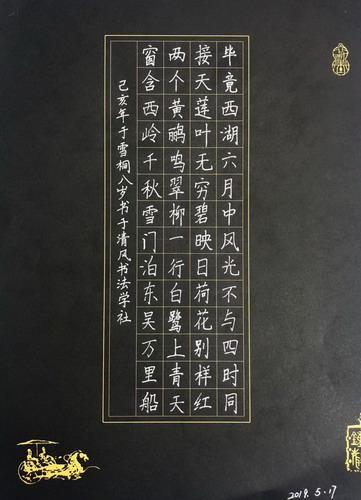 毕竟西湖六月中风光不与四时同
接天莲叶无穷碧映日荷花别样红
两个黄鹂鸣翠柳一行白鹭上青天
窗含西岭千秋雪门泊东吴万里船
己亥年于雪桐八岁书于清风书法学社
2019.5.17